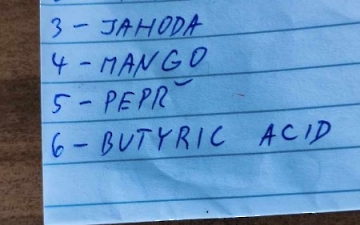 3 - JAHODA
4 - MANGO
5 - PEPŘ
6 - BUTYRIC ACID